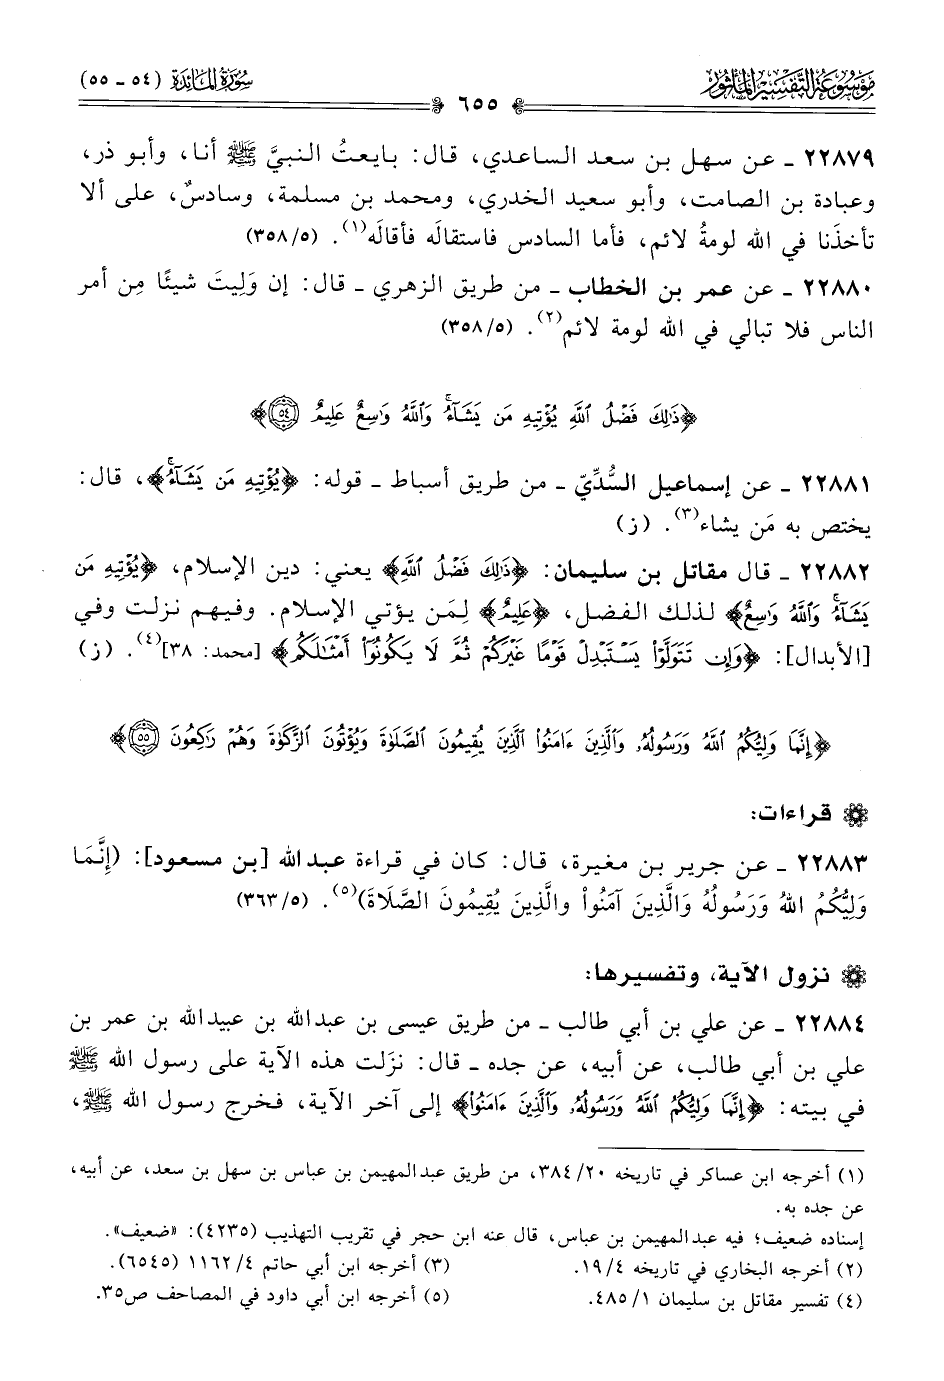 موسوعة التفسير المأثور
سورة المائدة (٥٤ ـ ٥٥)
٦٥٥
٢٢٨٧٩ ـ عن سهل بن سعد الساعدي، قال: بايعتُ النبيَّ ﷺ أنا، وأبو ذر،
وعبادة بن الصامت، وأبو سعيد الخدري، ومحمد بن مسلمة، وسادسٌ، على ألا
تأخذَنا في الله لومةُ لائم، فأما السادس فاستقالَه فأقالَه(١). (٣٥٨/٥)
٢٢٨٨٠ ـ عن عمر بن الخطاب ـ من طريق الزهري ـ قال: إن وَلِيتَ شيئًا مِن أمر
الناس فلا تبالي في الله لومة لائم(٢). (٣٥٨/٥)
﴿ذَٰلِكَ فَضْلُ ٱللَّهِ يُؤْتِيهِ مَن يَشَآءُۚ وَٱللَّهُ وَٰسِعٌ عَلِيمٌ ٥٤﴾
٢٢٨٨١ ـ عن إسماعيل السُّدِّيّ ـ من طريق أسباط ـ قوله: ﴿يُؤْتِيهِ مَن يَشَآءُۚ﴾، قال:
يختص به مَن يشاء(٣). (ز)
٢٢٨٨٢ ـ قال مقاتل بن سليمان: ﴿ذَٰلِكَ فَضْلُ ٱللَّهِ﴾ يعني: دين الإسلام، ﴿يُؤْتِيهِ مَن
يَشَآءُۚ وَٱللَّهُ وَٰسِعٌ﴾ لذلك الفضل، ﴿عَلِيمٌ﴾ لِمَن يؤتي الإسلام. وفيهم نزلت وفي
[الأبدال]: ﴿وَإِن تَتَوَلَّوْا۟ يَسْتَبْدِلْ قَوْمًا غَيْرَكُمْ ثُمَّ لَا يَكُونُوٓا۟ أَمْثَٰلَكُم﴾ [محمد: ٣٨](٤). (ز)
﴿إِنَّمَا وَلِيُّكُمُ ٱللَّهُ وَرَسُولُهُۥ وَٱلَّذِينَ ءَامَنُوا۟ ٱلَّذِينَ يُقِيمُونَ ٱلصَّلَوٰةَ وَيُؤْتُونَ ٱلزَّكَوٰةَ وَهُمْ رَٰكِعُونَ ٥٥﴾
قراءات:
٢٢٨٨٣ ـ عن جرير بن مغيرة، قال: كان في قراءة عبد الله [بن مسعود]: (إِنَّمَا
وَلِيُّكُمُ اللهُ وَرَسُولُهُ وَالَّذِينَ آمَنُواْ والَّذِينَ يُقِيمُونَ الصَّلَاةَ)(٥). (٣٦٣/٥)
نزول الآية، وتفسيرها:
٢٢٨٨٤ ـ عن علي بن أبي طالب ـ من طريق عيسى بن عبد الله بن عبيد الله بن عمر بن
علي بن أبي طالب، عن أبيه، عن جده ـ قال: نزَلت هذه الآية على رسول الله ﷺ
في بيته: ﴿إِنَّمَا وَلِيُّكُمُ ٱللَّهُ وَرَسُولُهُۥ وَٱلَّذِينَ ءَامَنُوا۟﴾ إلى آخر الآية، فخرج رسول الله ﷺ،
(١) أخرجه ابن عساكر في تاريخه ٣٨٤/٢٠، من طريق عبد المهيمن بن عباس بن سهل بن سعد، عن أبيه،
عن جده به.
إسناده ضعيف؛ فيه عبد المهيمن بن عباس، قال عنه ابن حجر في تقريب التهذيب (٤٢٣٥): «ضعيف».
(٢) أخرجه البخاري في تاريخه ١٩/٤.
(٣) أخرجه ابن أبي حاتم ١١٦٢/٤ (٦٥٤٥).
(٤) تفسير مقاتل بن سليمان ٤٨٥/١.
(٥) أخرجه ابن أبي داود في المصاحف ص٣٥.